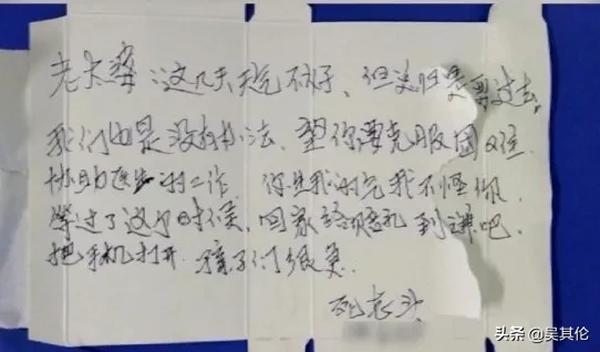 老太婆：这几天天气不好、但总归是要过去。
我们也是没有办法、望你要克服困难
协助医生的工作。你生我的气我不怪你，
等过了这个时候，回家给你赔礼道歉吧。
把手机打开. 孩子们很急.
死老头
头条@吴其伦